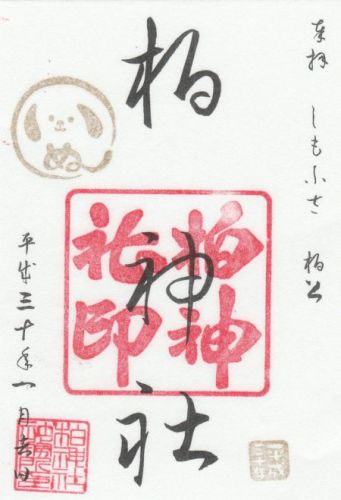 奉拝 しもふさ 柏
柏神社
柏神
社印
平成三十年一月吉日
柏神社